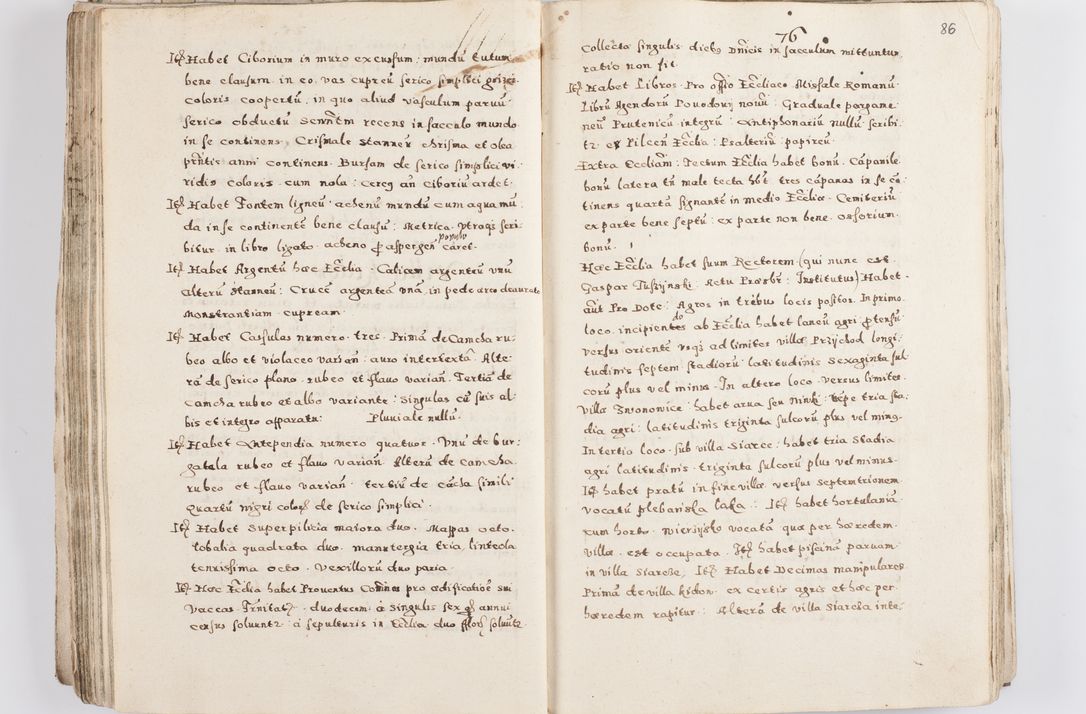 Itē Habet Ciborium in muro excussum: mundū tutum
bene clausum in eo vas cupreū serico simplici
coloris coopertū, in quo aliud vasculum paruū
serico obductū recens in sacculo mundo
in se continens. Crismale stanneū chrisma et olea
pntis anni continens. Bursam de serico simplici vi
ridis coloris cum nola: ciborium ardet.
Itē Habet Fontem ligneū aehenū mundū cum aqua mu
da in se continentē bene clausū: Metrica vtroqȝ scri
bitur in libro ligato. acheno aspergen
populū caret.
Itē Habet Argentū hæc Ecclia. Calicem argenteū vnū
alterū stanneū: Crucē argenteā vnā in pede areo deaurato
Monstrantiam cupream.
Itē Habet Casulas numero tres. Primā de Camcha ru
beo albo et violaceo varian: auro intertexta. Alte
rā de serico plano rubeo et flauo varian. Tertiā de
Camcha rubeo et albo variante: Singulas cū suis al
bis et integro apparatu: Pluuiale nullū.
Itē Habet Antependia numero quatuor. Vnū de bur
gatela rubeo et flauo varian. Alterū de Camcha
rubeo et flauo varian. tertiū de simili
Quartū nigri coloris de serico simplici.
Itē Habet Superpilicia maiora duo. Mappas octo.
tobalia quadrata duo. manutergia tria linteola
tenuissima octo. Vexillorū duo paria.
Itē Hæc Ecclia habet Prouentus pro ædificatione sui
Vaccas duodecim à singulis sex annui
census soluunt. à sepulturis in Ecclia duo soluunt.
76
86
Collecta singulis diebus Dnicis in sacculum mittuntur
ratio non fit.
Itē Habet Libros Pro offo Eccliae: Missale Romanū
Librū Agendorū nouū: Graduale pargame
neū Prutenicū integrū: Antiphonariū nullū: scribi
Ecclia: Psalteriū papireū.
Extra Eccliam: Tectum Ecclia habet bonū. Cāpanile
bonū latera tn male tecta hbt tres cāpanas in se cō
tinens quartā signantē in medio Ecclia. Cemiteriū
ex parte bene septū: ex parte non bene. ossorium
bonū.
Hæc Ecclia habet suum Rectorem (qui nunc est
Gaspar Actu Prosbr: Institutus) Habet
aūt Pro Dote: Agros in tribus locis positos. In primo
loco incipiendo ab Ecclia habet laneū agri protensū
versus orientē vsqȝ ad limites villæ Przychod longi
tudinis septem stadiorū: latitudinis sexaginta sul
corū plus vel minus. In altero loco versus limites
villæ habet arua seu tria sta
dia agri: latitudinis triginta sulcorū plus vel ming.
In tertio loco sub villa Siarce: habet tria stadia
agri latitudinis triginta sulcorū plus vel minus.
Itē habet pratū in fine villæ versus septemtrionem
vocatū plebanska laka: Itē habet hortulaniā
cum horto vocatā quæ per hæredem
villæ est occupata. Itē habet piscinā paruam
in villa Siarcze, Itē Habet Decimas manipulares
Primā de villa ex certis agris et hæc per
hæredem rapitur: Alterā de villa Siarcza inte.